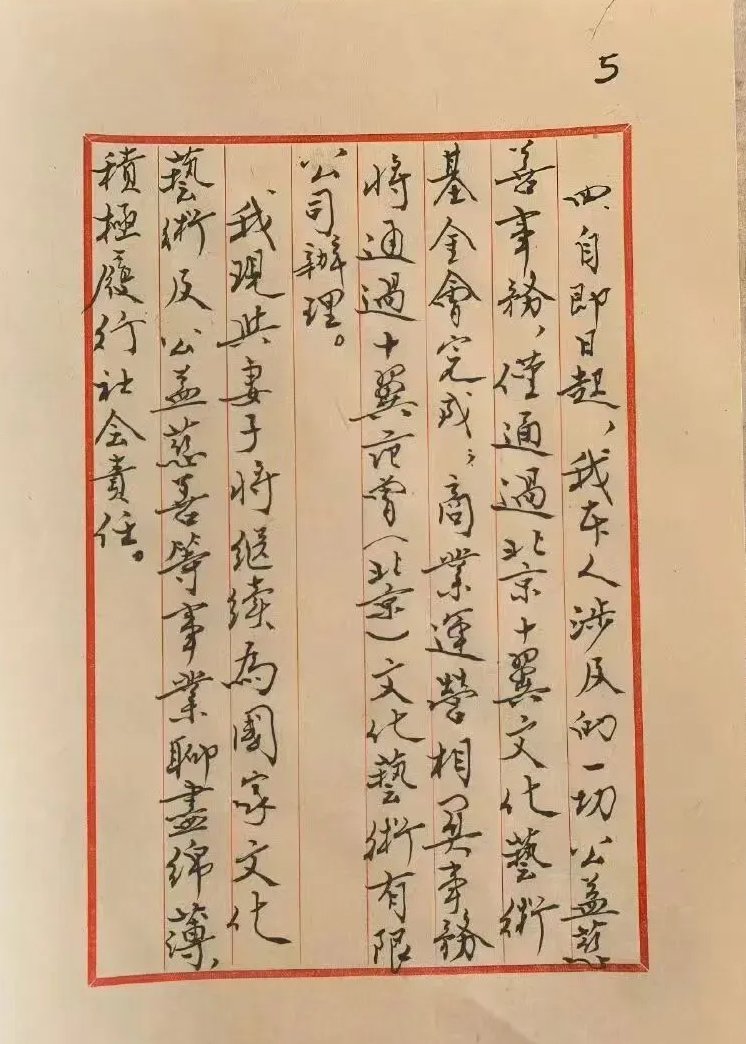 5
四、自即日起，我本人涉及的一切公益慈
善事務，僅通過北京十翼文化藝術
基金會完成；商業運營相關事務
將通過十翼范曾（北京）文化藝術有限
公司辦理。
我現與妻子將继续為國家文化
藝術及公益慈善等事業聊盡綿薄，
積極履行社会責任。